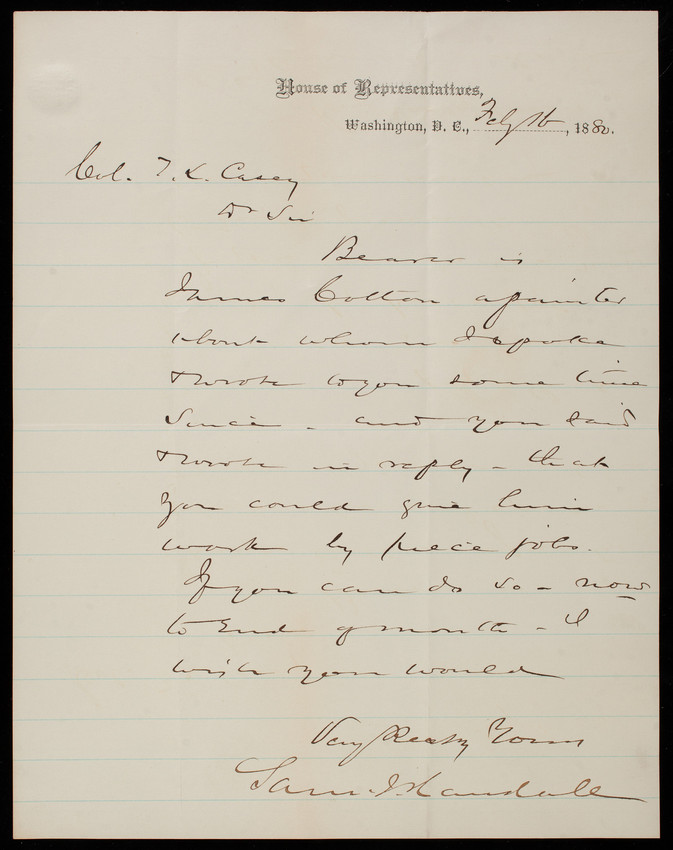 House of Representatives,
Washington, D. C., Feby 16, 1880.
Col. T. L. Casey
Dr Sir
Bearer is
James Cotton a painter
about whom I spoke
& wrote to you some time
since - and you said
& wrote in reply - that
you could give him
work by piece jobs.
If you can do so - now
to end of month - I
wish you would
Very Respty Yours
Sam. J. Randall